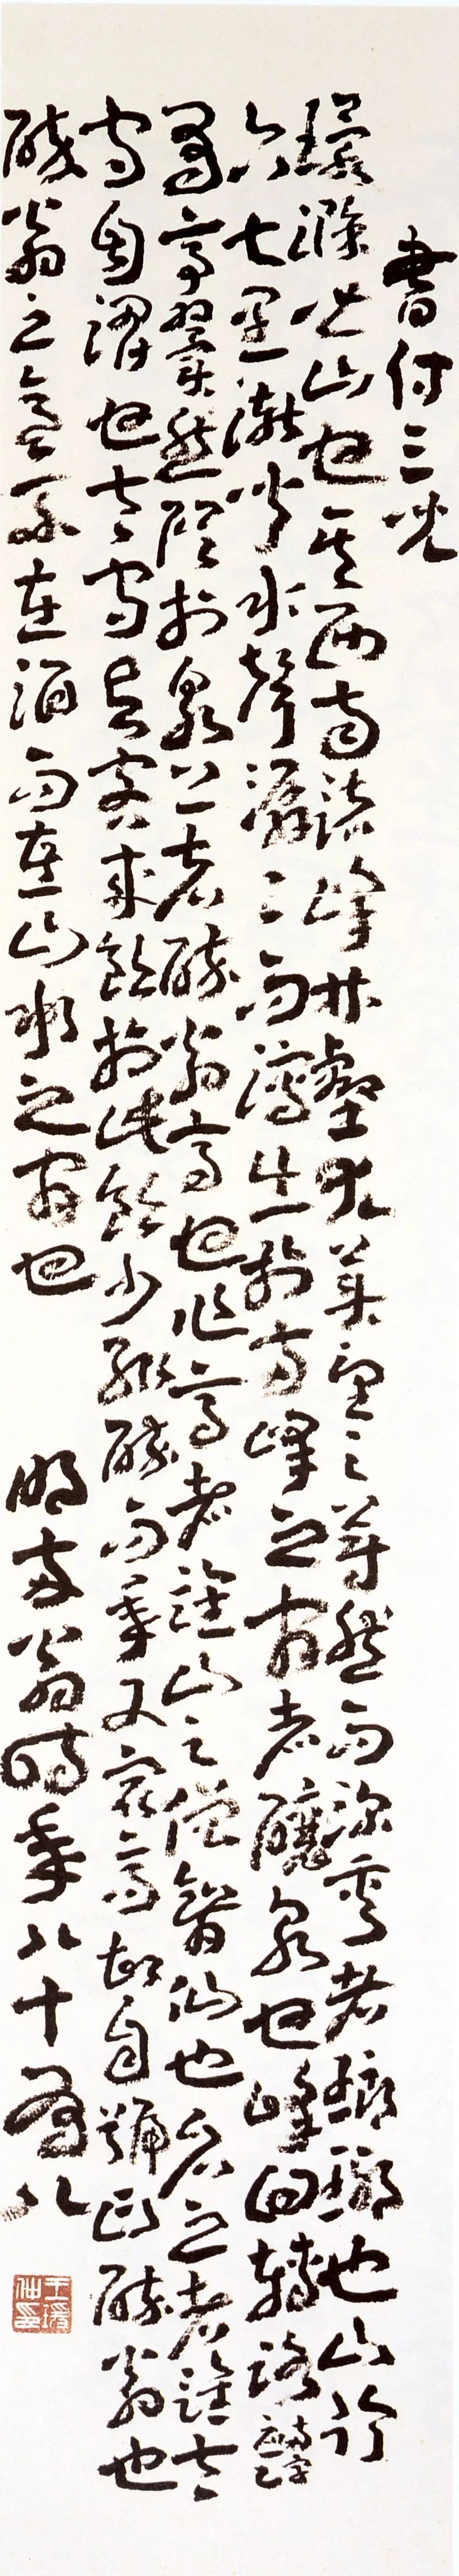 書付三
環滁皆山也其西南諸峰林壑尤美望之蔚然而深秀者瑯琊也山行
六七里漸聞水聲潺〻而瀉出於兩峰之間者釀泉也峰回轉路
有亭翼然臨於泉上者醉翁亭也作亭者誰山之僧智仙也名之者誰太
守自謂也太守與客來飲於此飲少輒醉而年又最高故自號曰醉翁也
醉翁之意不在酒而在山水之間也 明兩翁時年八十有八
王瑗仲印